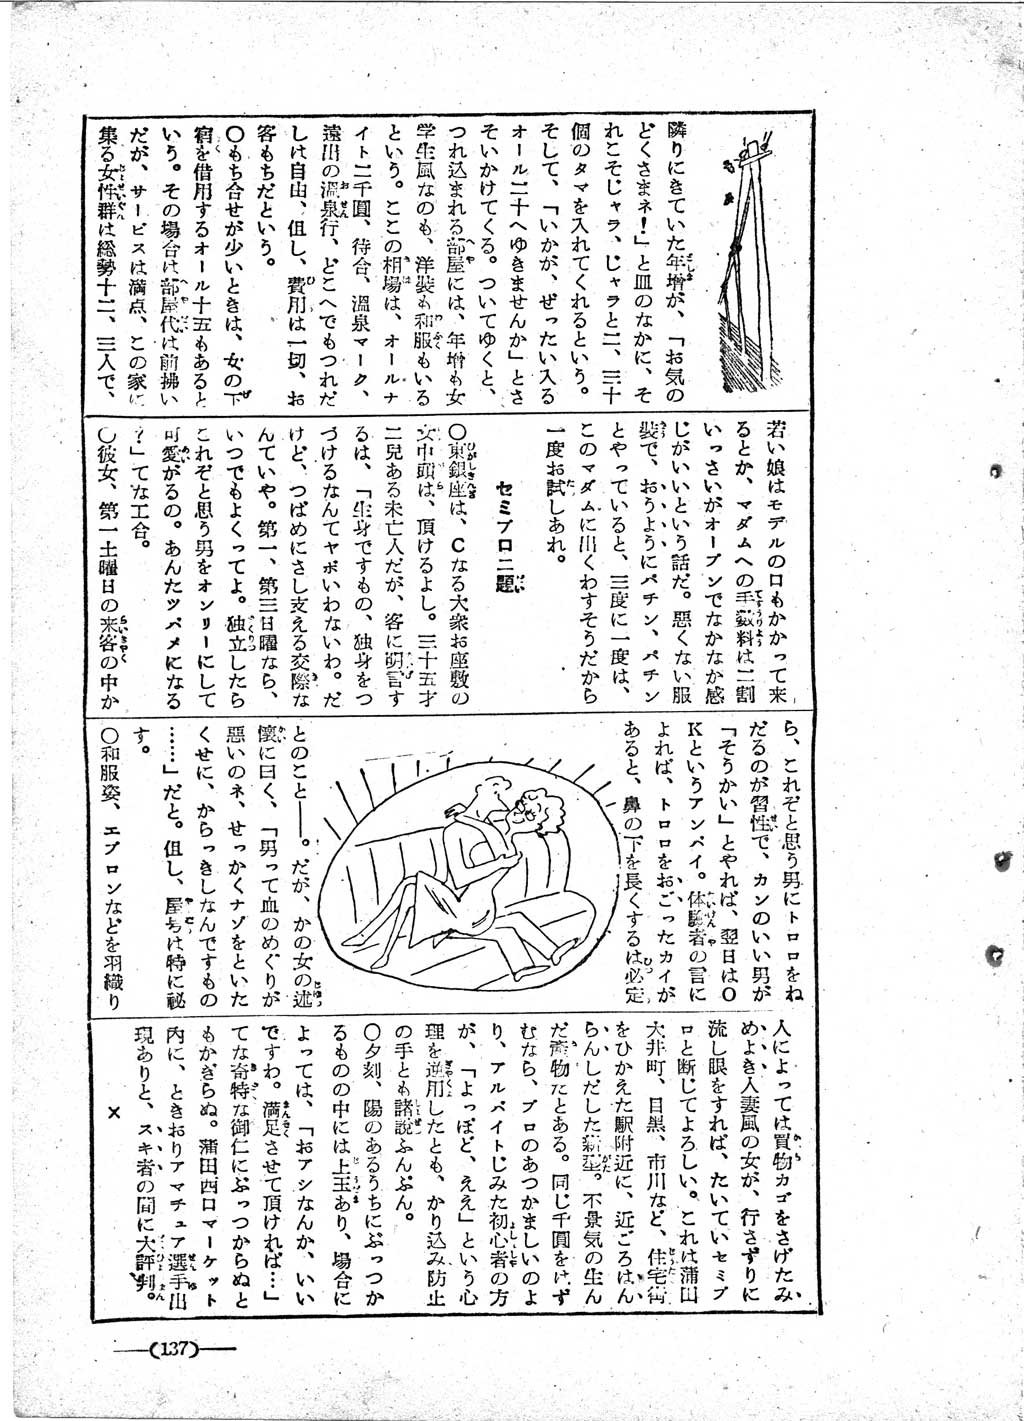 隣りにきていた年増が、「お気の
どくさまネ!」と皿のなかに、そ
れこそじャラ、じャラと二、三十
個のタマを入れてくれるという。
そして、「いかが、ぜったい入る
オール二十へゆきませんか」とさ
そいかけてくる。ついてゆくと、
つれ込まれる部屋には、年増も女
学生風なのも、洋装も和服もいる
という。ここの相場は、オールナ
イト二千圓、待合、溫泉マーク、
遠出の溫泉行、どこへでもつれだ
しは自由、但し、費用は一切、お
客もちだという。
〇もち合せが少いときは、女の下
宿を借用するオール十五もあると
いう。その場合は部屋代は前拂い
だが、サービスは満点、この家に
集る女性群は総勢十二、三人で、
若い娘はモデルの口もかかって来
るとか、マダムへの手数料は二割
いっさいがオープンでなかなか感
じがいいという話だ。悪くない服
装で、おうようにパチン、パチン
とやっていると、三度に一度は、
このマダムに出くわすそうだから
一度お試しあれ。
セミプロ二題
〇東銀座は、Cなる大衆お座敷の
女中頭は、頂けるよし。三十五才
二兒ある未亡人だが、客に明言す
るは、「生身ですもの、独身をつ
づけるなんてヤボいわないわ。だ
けど、つばめにさし支える交際な
んていや。第一、第三日曜なら、
いつでもよくってよ。独立したら
これぞと思う男をオンリーにして
可愛がるの。あんたツバメになる
?」てな工合。
〇彼女、第一土曜日の来客の中か
ら、これぞと思う男にトロロをね
だるのが習性で、カンのいい男が
「そうかい」とやれば、翌日はO
Kというアンバイ。体驗者の言に
よれば、トロロをおごったカイが
あると、鼻の下を長くするは必定
とのこと――。だが、かの女の述
懐に曰く、「男って血のめぐりが
悪いのネ、せっかくナゾをといた
くせに、からっきしなんですもの
……」だと。但し、屋号は特に秘
す。
〇和服姿、エプロンなどを羽織り
人によっては買物カゴをさげたみ
めよき人妻風の女が、行きずりに
流し眼をすれば、たいていセミプ
ロと断じてよろしい。これは蒲田
大井町、目黒、市川など、住宅街
をひかえた駅附近に、近ごろはん
らんしだした新型。不景気の生ん
だ産物だとある。同じ千圓をけず
むなら、プロのあつかましいのよ
り、アルバイトじみた初心者の方
が、「よっぽど、ええ」という心
理を逆用したとも、かり込み防止
の手とも諸説ふんぷん。
〇夕刻、陽のあるうちにぶっつか
るものの中には上玉あり、場合に
よっては、「おアシなんか、いい
ですわ。満足させて頂ければ…」
てな奇特な御仁にぶっつからぬと
もかぎらぬ。蒲田西口マーケット
内に、ときおりアマチュア選手出
現ありと、スキ者の間に大評判。
×
(137)